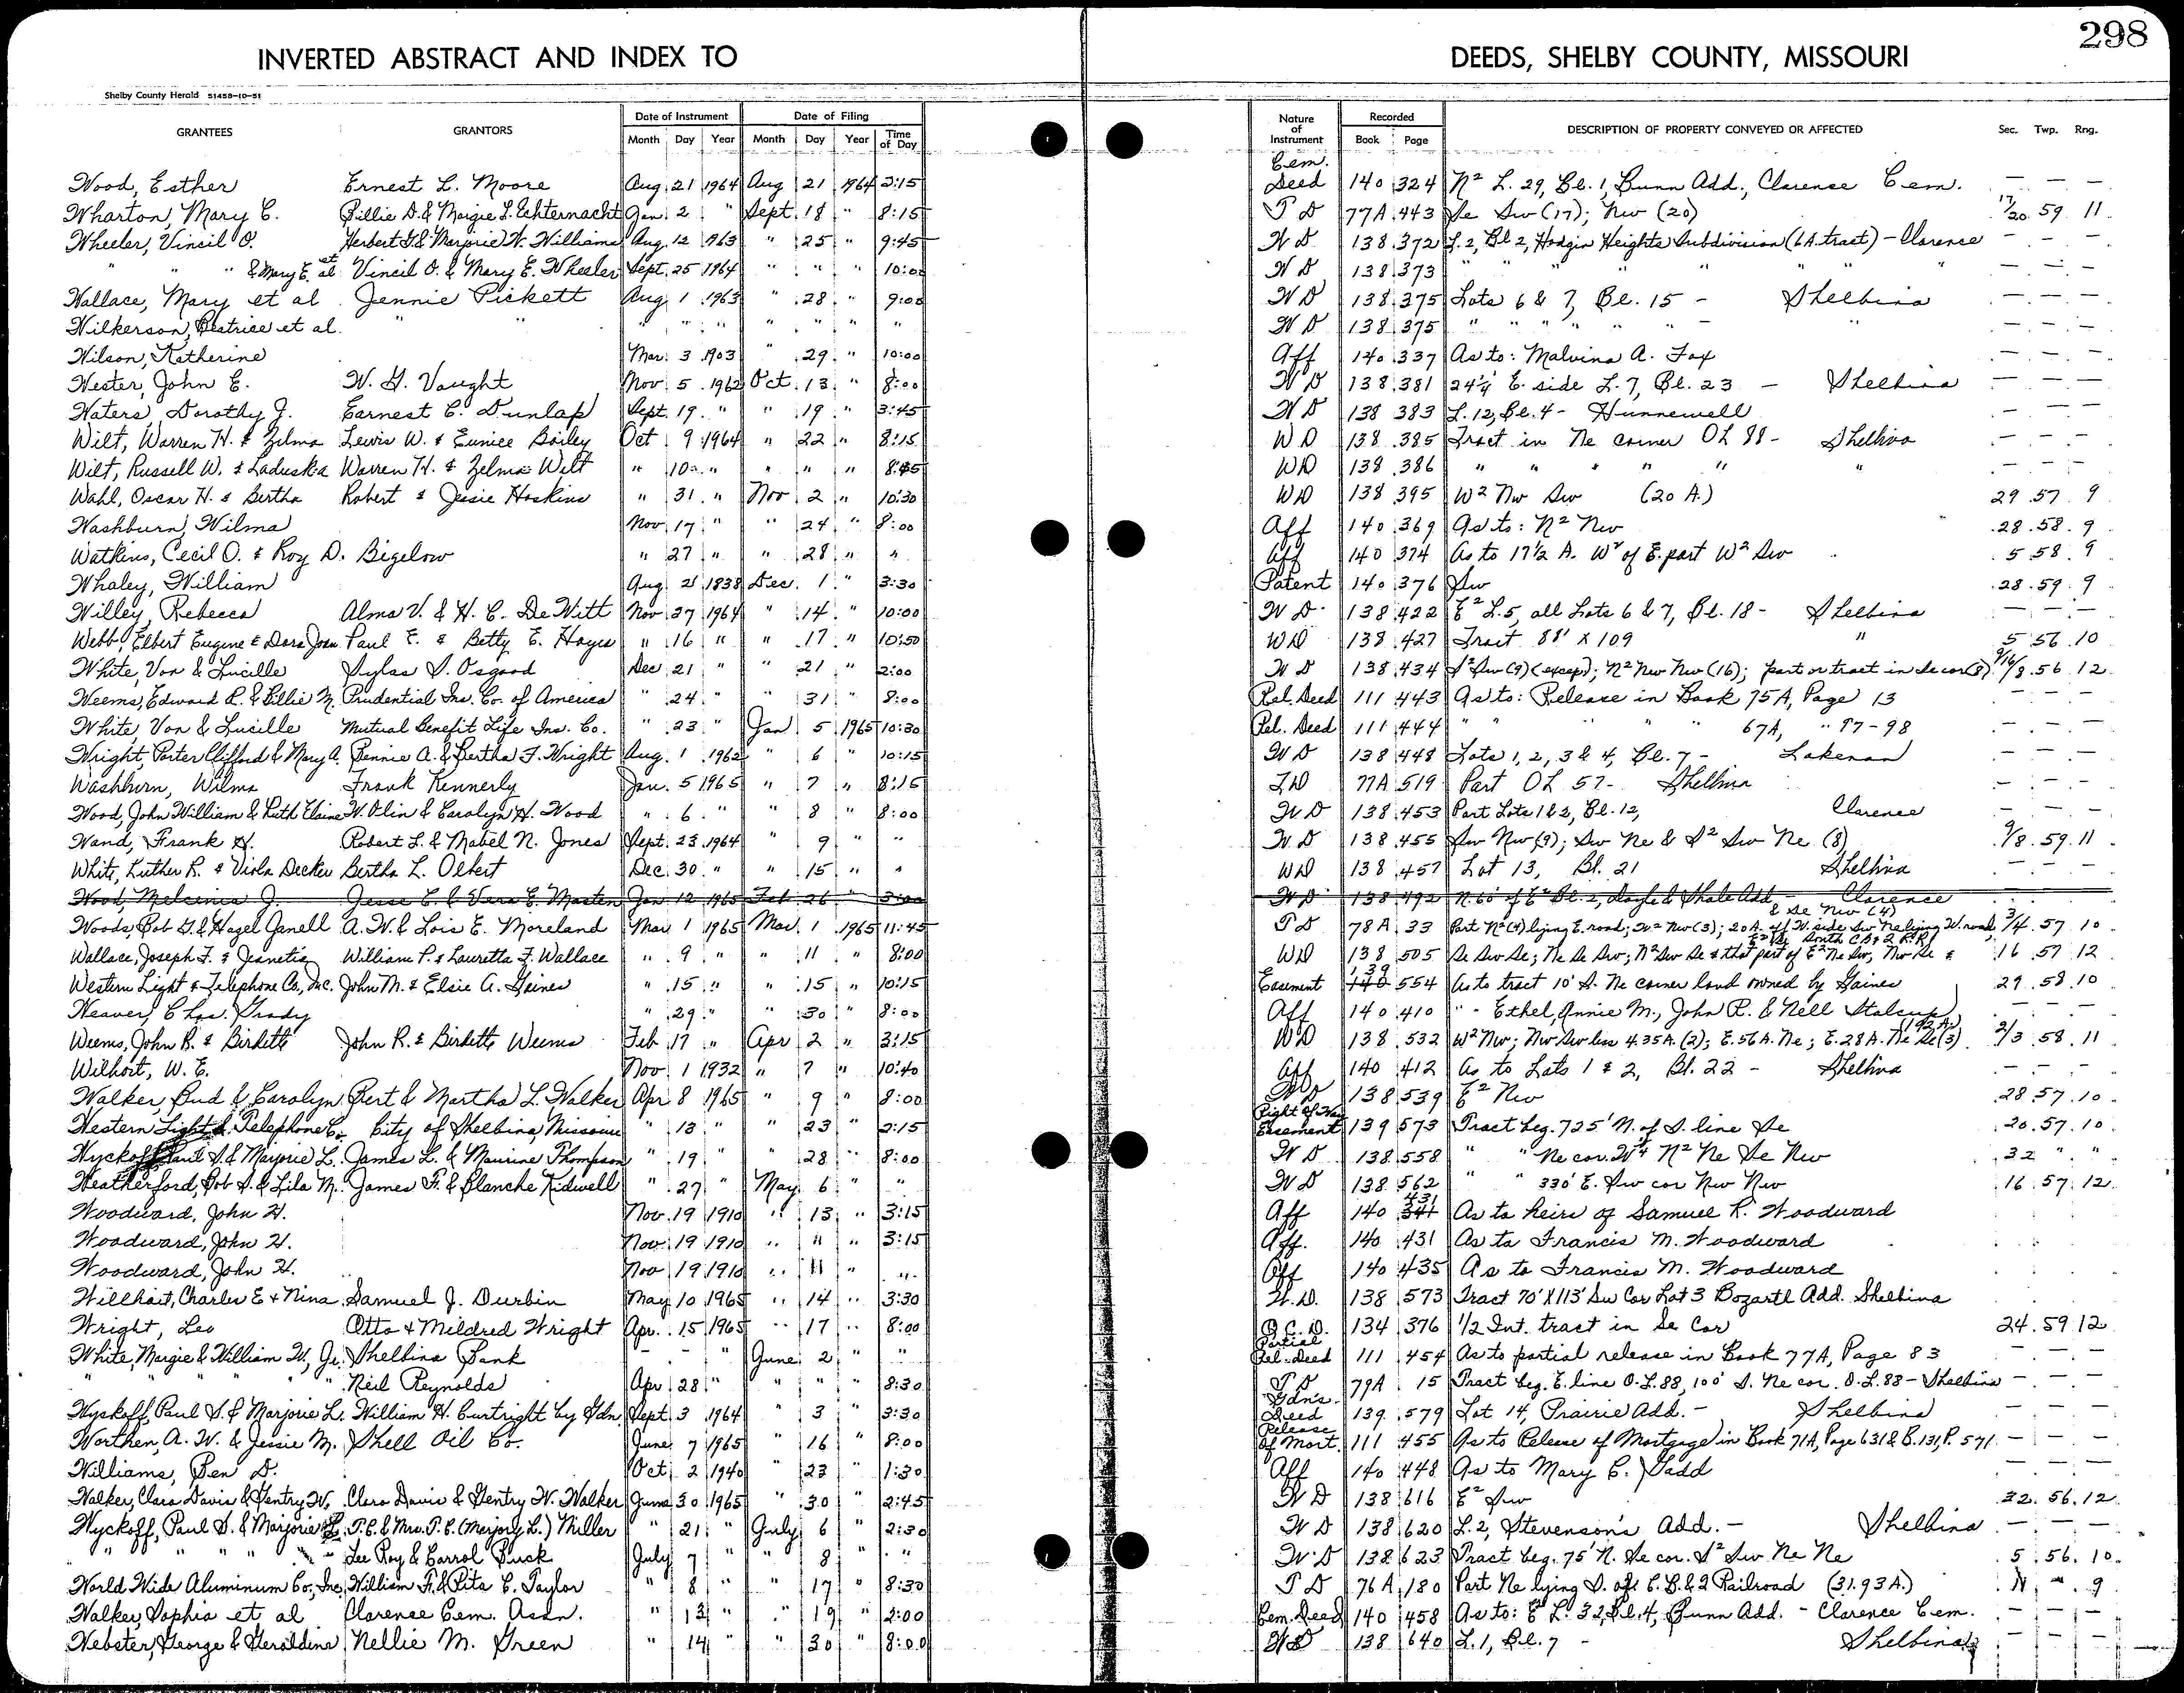 298
INVERTED ABSTRACT AND INDEX TO DEEDS, SHELBY COUNTY, MISSOURI
Shelby County Herald 51458-10-51
GRANTEES GRANTORS Date of Instrument Date of Filing Nature of Instrument Recorded DESCRIPTION OF PROPERTY CONVEYED OR AFFECTED Sec. Twp. Rng.
Month Day Year Month Day Year Time of Day Book Page
Wood, Esther Ernest L. Moore Aug 21 1964 Aug 21 1964 2:15 Cem. Deed 140 324 N² L. 29, Bl. 1, Bunn Add., Clarence Cem. — — —
Wharton, Mary C. Billie D. & Margie L. Echternacht Jan. 2 " Sept. 18 " 8:15 T D 77A 443 Se Sw (17); Nw (20) 17/20 59 11
Wheeler, Vincil O. Herbert G. & Marjorie W. Williams Aug. 12 1963 " 25 " 9:45 W D 138 372 L. 2, Bl 2, Hodgin Heights Subdivision (6A. tract) - Clarence — — —
" " " & Mary E. et al Vincil O. & Mary E. Wheeler Sept. 25 1964 " " " 10:00 W D 138 373 " " " " " " " — — —
Wallace, Mary et al Jennie Pickett Aug 1 1963 " 28 " 9:00 W D 138 375 Lots 6 & 7, Bl. 15 - Shelbina — — —
Wilkerson, Beatrice et al. " " " " " " " " " W D 138 375 " " " " " - " — — —
Wilson, Katherine Mar. 3 1903 " 29 " 10:00 Aff 140 337 As to: Malvina A. Fox — — —
Wester, John E. W. G. Vaught Nov. 5 1962 Oct. 13 " 8:00 W D 138 381 24¼' E. side L. 7, Bl. 23 - Shelbina — — —
Waters, Dorothy J. Earnest C. Dunlap Sept. 19 " " 19 " 3:45 W D 138 383 L. 12, Bl. 4 - Hunnewell — — —
Wilt, Warren H. & Zelma Lewis W. & Eunice Bailey Oct 9 1964 " 22 " 8:15 WD 138 385 Tract in Ne corner OL 88 - Shelbina — — —
Wilt, Russell W. & Laduska Warren H. & Zelma Wilt " 10 " " " " 8:45 WD 138 386 " " " " " " — — —
Wahl, Oscar H. & Bertha Robert & Jessie Hoskins " 31 " Nov 2 " 10:30 WD 138 395 W² Nw Sw (20 A.) 29 57 9
Washburn, Wilma Nov 17 " " 24 " 8:00 Aff 140 369 As to: N² Nw 28 58 9
Watkins, Cecil O. & Roy D. Bigelow " 27 " " 28 " " Aff 140 374 As to 17½ A. W² of E. part W² Sw 5 58 9
Whaley, William Aug. 21 1838 Dec. 1 " 3:30 Patent 140 376 Sw 28 59 9
Willey, Rebecca Alma V. & H. C. DeWitt Nov 27 1964 " 14 " 10:00 W D 138 422 E² L. 5, all Lots 6 & 7, Bl. 18 - Shelbina — — —
Webb, Elbert Eugene & Dora Joan Paul E. & Betty E. Hayes " 16 " " 17 " 10:50 WD 138 427 Tract 88' X 109 " 5 56 10
White, Von & Lucille Sylas S. Osgood Dec 21 " " 21 " 2:00 W D 138 434 S² Sw (9) (except); N² Nw Nw (16); part or tract in Se cor (8) 9/16/8 56 12
Weems, Edward R. & Billie M. Prudential Ins. Co. of America " 24 " " 31 " 8:00 Rel. Deed 111 443 As to: Release in Book 75A, Page 13 — — —
White, Von & Lucille Mutual Benefit Life Ins. Co. " 23 " Jan 5 1965 10:30 Rel. Deed 111 444 " " " " " 67A, " 97-98 — — —
Wright, Porter Clifford & Mary A. Bennie A. & Bertha F. Wright Aug. 1 1962 " 6 " 10:15 W D 138 448 Lots 1, 2, 3 & 4, Bl. 7 - Lakenan — — —
Washburn, Wilma Frank Kennerly Jan. 5 1965 " 7 " 8:15 TD 77A 519 Part OL 57 - Shelbina — — —
Wood, John William & Ruth Elaine W. Olin & Carolyn H. Wood " 6 " " 8 " 8:00 W D 138 453 Part Lots 1 & 2, Bl. 12, Clarence — — —
Wand, Frank H. Robert L. & Mabel N. Jones Sept. 23 1964 " 9 " " W D 138 455 Sw Nw (9); Sw Ne & S² Sw Ne (8) 9/8 59 11
White, Luther R. & Viola Decker Bertha L. Olbert Dec. 30 " " 15 " " WD 138 457 Lot 13, Bl. 21 Shelbina — — —
Wood, Melvenia J. Jesse C. & Vera E. Masten Jan 12 1965 Feb 26 " 3:00 W D 138 492 N. 60' of E² Bl. 2, Doyle & Shale Add. - Clarence
Woods, Bob G. & Hazel Janell A. W. & Lois E. Moreland Mar 1 1965 Mar. 1 1965 11:45 T D 78A 33 Part N² (4) lying E. road; W² Nw (3); 20 A. off W. side Sw Ne lying W. road & Se Nw (4) 3/4 57 10
Wallace, Joseph F. & Jeanetia William P. & Lauretta F. Wallace " 9 " " 11 " 8:00 WD 138 505 Se Sw Se; Ne Se Sw; N² Sw Se & that part of E² Ne Sw, Nw Se & South CB&Q R.R. 16 57 12
Western Light & Telephone Co., Inc. John M. & Elsie A. Gaines " 15 " " 15 " 10:15 Easement 139 554 As to tract 10' S. Ne corner land owned by Gaines 29 58 10
Weaver, Chas. Grady " 29 " " 30 " 8:00 Aff 140 410 " - Ethel, Annie M., John R. & Nell Stalcup — — —
Weems, John R. & Birdette John R. & Birdette Weems Feb 17 " Apr 2 " 3:15 WD 138 532 W² Nw; Nw Sw less 4.35A. (2); E. 56 A. Ne; E. 28 A. Ne Se (3) 192 A. 2/3 58 11
Wilhoit, W. E. Nov 1 1932 " 7 " 10:40 Aff 140 412 As to Lots 1 & 2, Bl. 22 - Shelbina — — —
Walker, Bud & Carolyn Bert & Martha L. Walker Apr 8 1965 " 9 " 8:00 WD 138 539 E² Nw 28 57 10
Western Light & Telephone Co. City of Shelbina, Missouri " 13 " " 23 " 2:15 Right of Way Easement 139 573 Tract beg. 725' N. of S. line Se 20 57 10
Wyckoff, Paul S. & Marjorie L. James L. & Maurine Thompson " 19 " " 28 " 8:00 W D 138 558 " " Ne cor. W² N² Ne Se Nw 32 " "
Weatherford, Bob S. & Lila M. James F. & Blanche Kidwell " 27 " May 6 " " W D 138 562 " " 330' E. Sw cor Nw Nw 16 57 12
Woodward, John H. Nov. 19 1910 " 13 " 3:15 Aff 140 431 As to heirs of Samuel R. Woodward
Woodward, John H. Nov. 19 1910 " " " 3:15 Aff. 140 431 As to Francis M. Woodward
Woodward, John H. Nov 19 1910 " " " " Aff 140 435 As to Francis M. Woodward
Willhoit, Charles E + Nina Samuel J. Durbin May 10 1965 " 14 " 3:30 W.D. 138 573 Tract 70' X 113' Sw Cor Lot 3 Bozarth Add. Shelbina
Wright, Leo Otto + Mildred Wright Apr. 15 1965 " 17 " 8:00 Q.C.D. 134 376 1/2 Int. tract in Se Cor 24 59 12
White, Margie & William W., Jr. Shelbina Bank - - " June 2 " " Partial Rel. Deed 111 454 As to partial release in Book 77A, Page 83 — — —
" " " " " Neil Reynolds Apr 28 " " " " 8:30 T D 79A 15 Tract beg. E. line O.L. 88, 100' S. Ne cor. O.L. 88 - Shelbina — — —
Wyckoff, Paul S. & Marjorie L. William H. Curtright by Gdn. Sept. 3 1964 " 3 " 3:30 Gdn's Deed 139 579 Lot 14, Prairie Add. - Shelbina — — —
Worthen, A. W. & Jessie M. Shell Oil Co. June 7 1965 " 16 " 8:00 Release of Mort. 111 455 As to Release of Mortgage in Book 71A, Page 631 & B. 131, P. 571 — — —
Williams, Ben D. Oct. 2 1940 " 23 " 1:30 Aff 140 448 As to Mary C. Gadd — — —
Walker, Clara Davis & Gentry W. Clara Davis & Gentry W. Walker June 30 1965 " 30 " 2:45 W D 138 616 E² Sw 32 56 12
Wyckoff, Paul S. & Marjorie L. T. C. & Mrs. T. C. (Marjory L.) Miller " 21 " July 6 " 2:30 W D 138 620 L. 2, Stevenson's Add. - Shelbina — — —
" " " " " Lee Roy & Carrol Buck July 7 " " 8 " " W D 138 623 Tract beg. 75' N. Se cor. S² Sw Ne Ne 5 56 10
World Wide Aluminum Co., Inc. William F. & Rita C. Taylor " 8 " " 17 " 8:30 T D 76A 180 Part Ne lying S. of C. B. & Q Railroad (31.93 A.) 9
Walker, Sophia et al Clarence Cem. Assn. " 13 " " 19 " 2:00 Cem. Deed 140 458 As to: E² L. 32, Bl. 4, Bunn Add. - Clarence Cem. — — —
Webster, George & Geraldine Nellie M. Green " 14 " " 30 " 8:00 WD 138 640 L. 1, Bl. 7 - Shelbina — — —